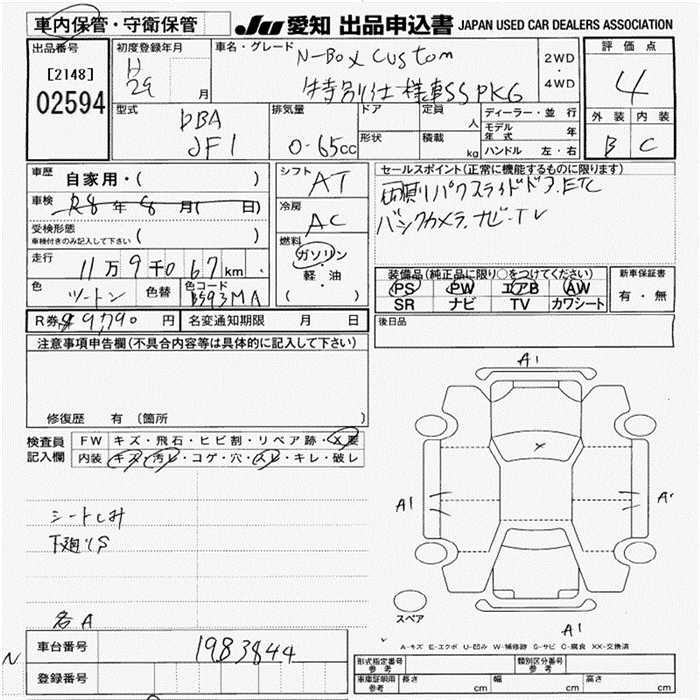 車内保管・守衛保管
JU 愛知 出品申込書 JAPAN USED CAR DEALERS ASSOCIATION
出品番号
[2148]
02594
初度登録年月
H
29 月
車名・グレード
N-Box Custom
特別仕様車SS PKG
2WD
・
4WD
評価点
4
外装 内装
B C
型式
DBA
JF1
排気量
0-65cc
ドア
形状
定員
人
積載
kg
ディーラー・並行
モデル年式 年
ハンドル 左・右
車歴 自家用・( )
車検 R8年8月( 日)
受検形態
車検付きのみ記入して下さい ( )
走行 11万9千067km
色 ツートン 色替 色コード B593MA
シフト AT
冷房 AC
燃料
ガソリン
・
軽・油
( )
セールスポイント(正常に機能するものに限ります)
両側パワスライドドア.ETC
バックカメラ.ナビ・TV
装備品(純正品に限り○をつけてください)
PS PW エアB AW
SR ナビ TV カワシート
新車保証書
有・無
R券 ¥9,790 円
名変通知期限 月 日
後日品
注意事項申告欄(不具合内容等は具体的に記入して下さい)
修復歴 有 (箇所
検査員記入欄
FW キズ・飛石・ヒビ割・リペア跡・X要
内装 キズ・汚レ・コゲ・穴・スレ・キレ・破レ
シートしみ
下廻りS
各A
A1
A1
A1
スペア
A-キズ E-エクボ U-凹み W-補修跡 S-サビ C-腐食 XX-交換済
N
車台番号 1983844
登録番号
形式指定番号
参考
類別区分番号
参考
車庫証明用
参考
長さ cm 幅 cm 高さ cm